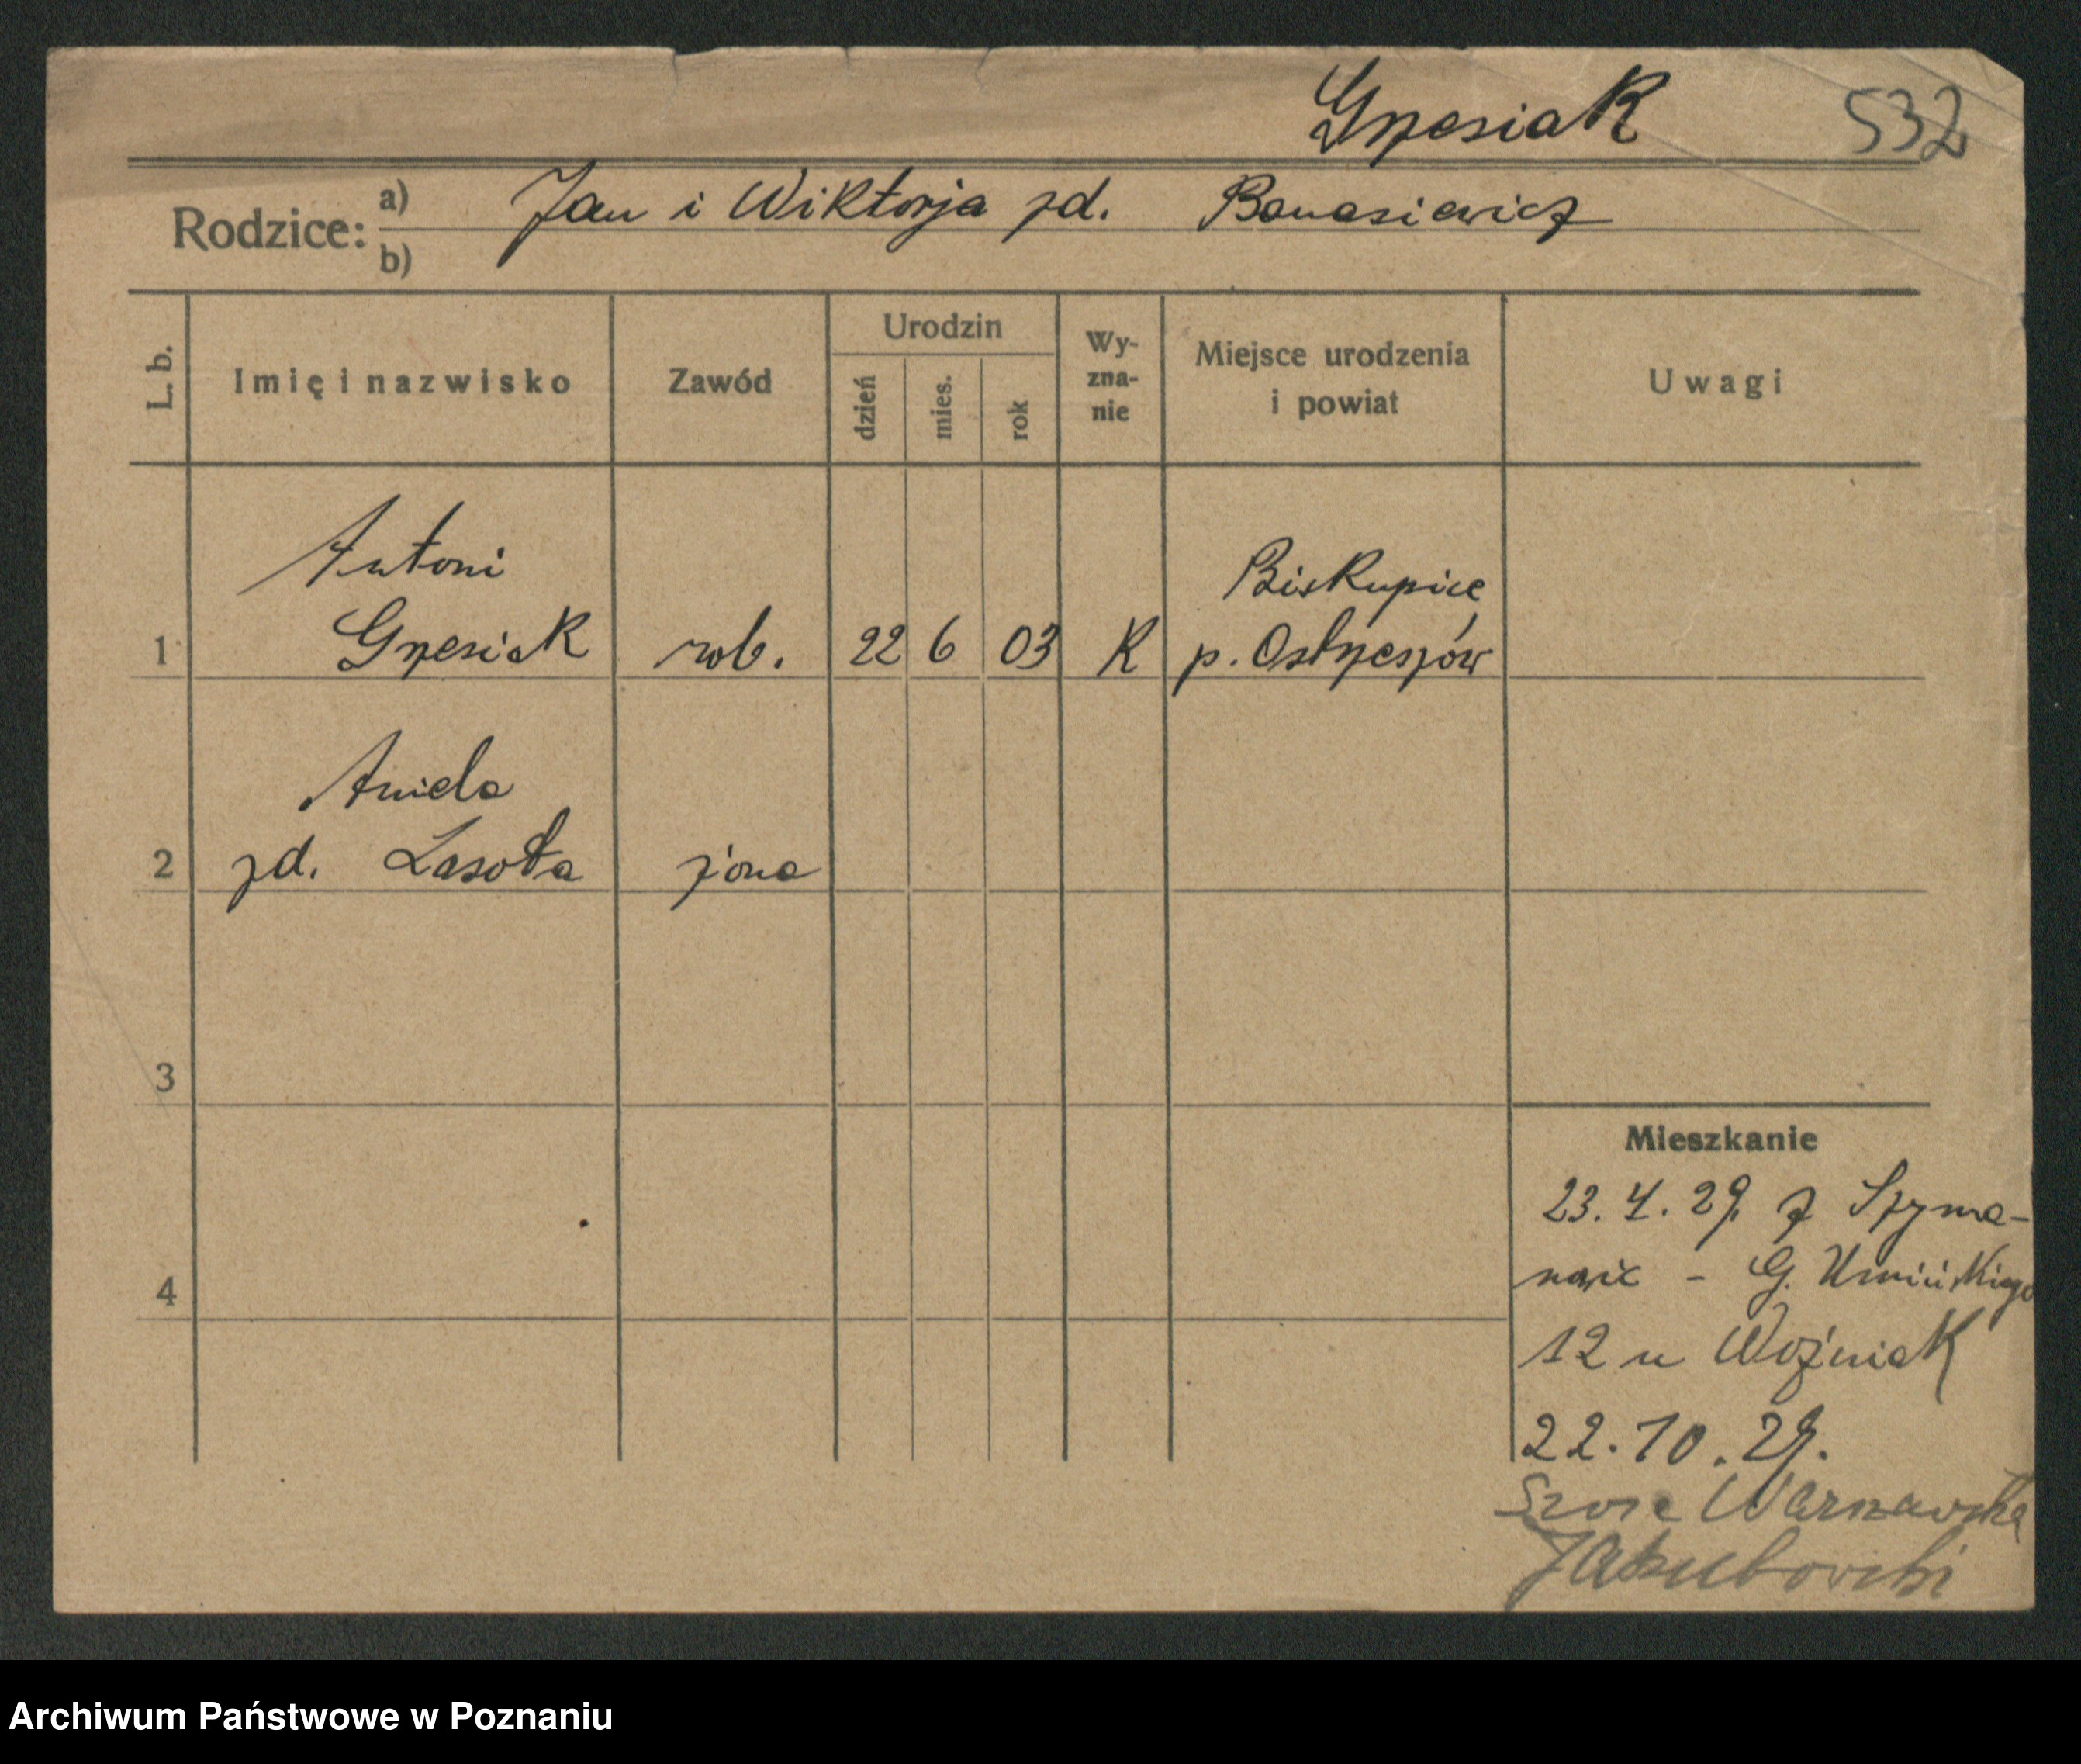 Grzesiak 532
Rodzice: a) Jan i Wiktorja zd. Banasiewicz
b)
L. b. Imię i nazwisko Zawód Urodzin dzień mies. rok Wy-zna-nie Miejsce urodzenia i powiat Uwagi
Antoni Biskupice
1 Grzesiak rob. 22 6 03 K p. Ostrzeszów
Aniela
2 zd. Lasota żona
3
4
Mieszkanie
23.4.29. z Szyma-
nowic - G. Umińskiego
12 u Woźniak
22.10.29.
Szosa Warszawska
Jakubowski
Archiwum Państwowe w Poznaniu